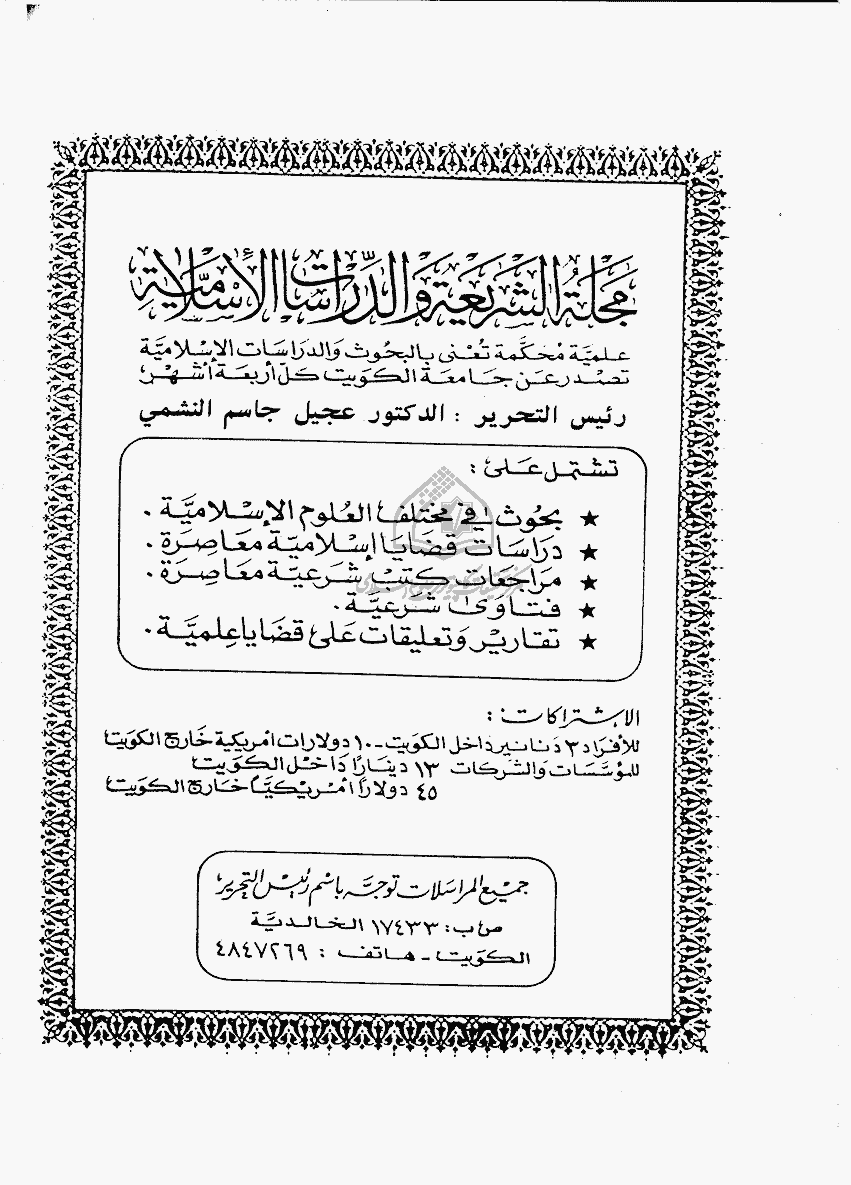 مجلة الشريعة والدراسات الإسلامية
علميَّة مُحكَّمة تُعْنى بالبحُوث وَالدرَاسَات الإسْلاميَّة
تصْدر عَن جَامعَة الكويت كلّ أربعَة أشهُر
رئيس التحرير : الدكتور عجيل جاسم النشمي
تشتمل عَلىٰ :
★ بحُوث في مختلف العُلوم الإسْلاميَّة .
★ دَراسَات قضَايا إسْلاميَّة معَاصِرَة .
★ مرَاجعَات كتب شرعيَّة معَاصِرَة .
★ فتَاوىٰ شرعيَّة .
★ تقارير وَتعليقات عَلىٰ قضَايا عِلميَّة .
الاشتراكات :
للأفرَاد ٣ دَنانير دَاخل الكويت - ١٠ دولارات أمريكية خَارج الكويت
للمؤسَّسَات والشركات ١٣ دينَارًا دَاخل الكويت
٤٥ دولارًا أمريكيًّا خَارج الكويت
جميع المراسلات توجّه باسم رئيس التحرير
ص ب : ١٧٤٣٣ الخالديَّة
الكوَيت - هاتف : ٤٨٤٧٢٦٩